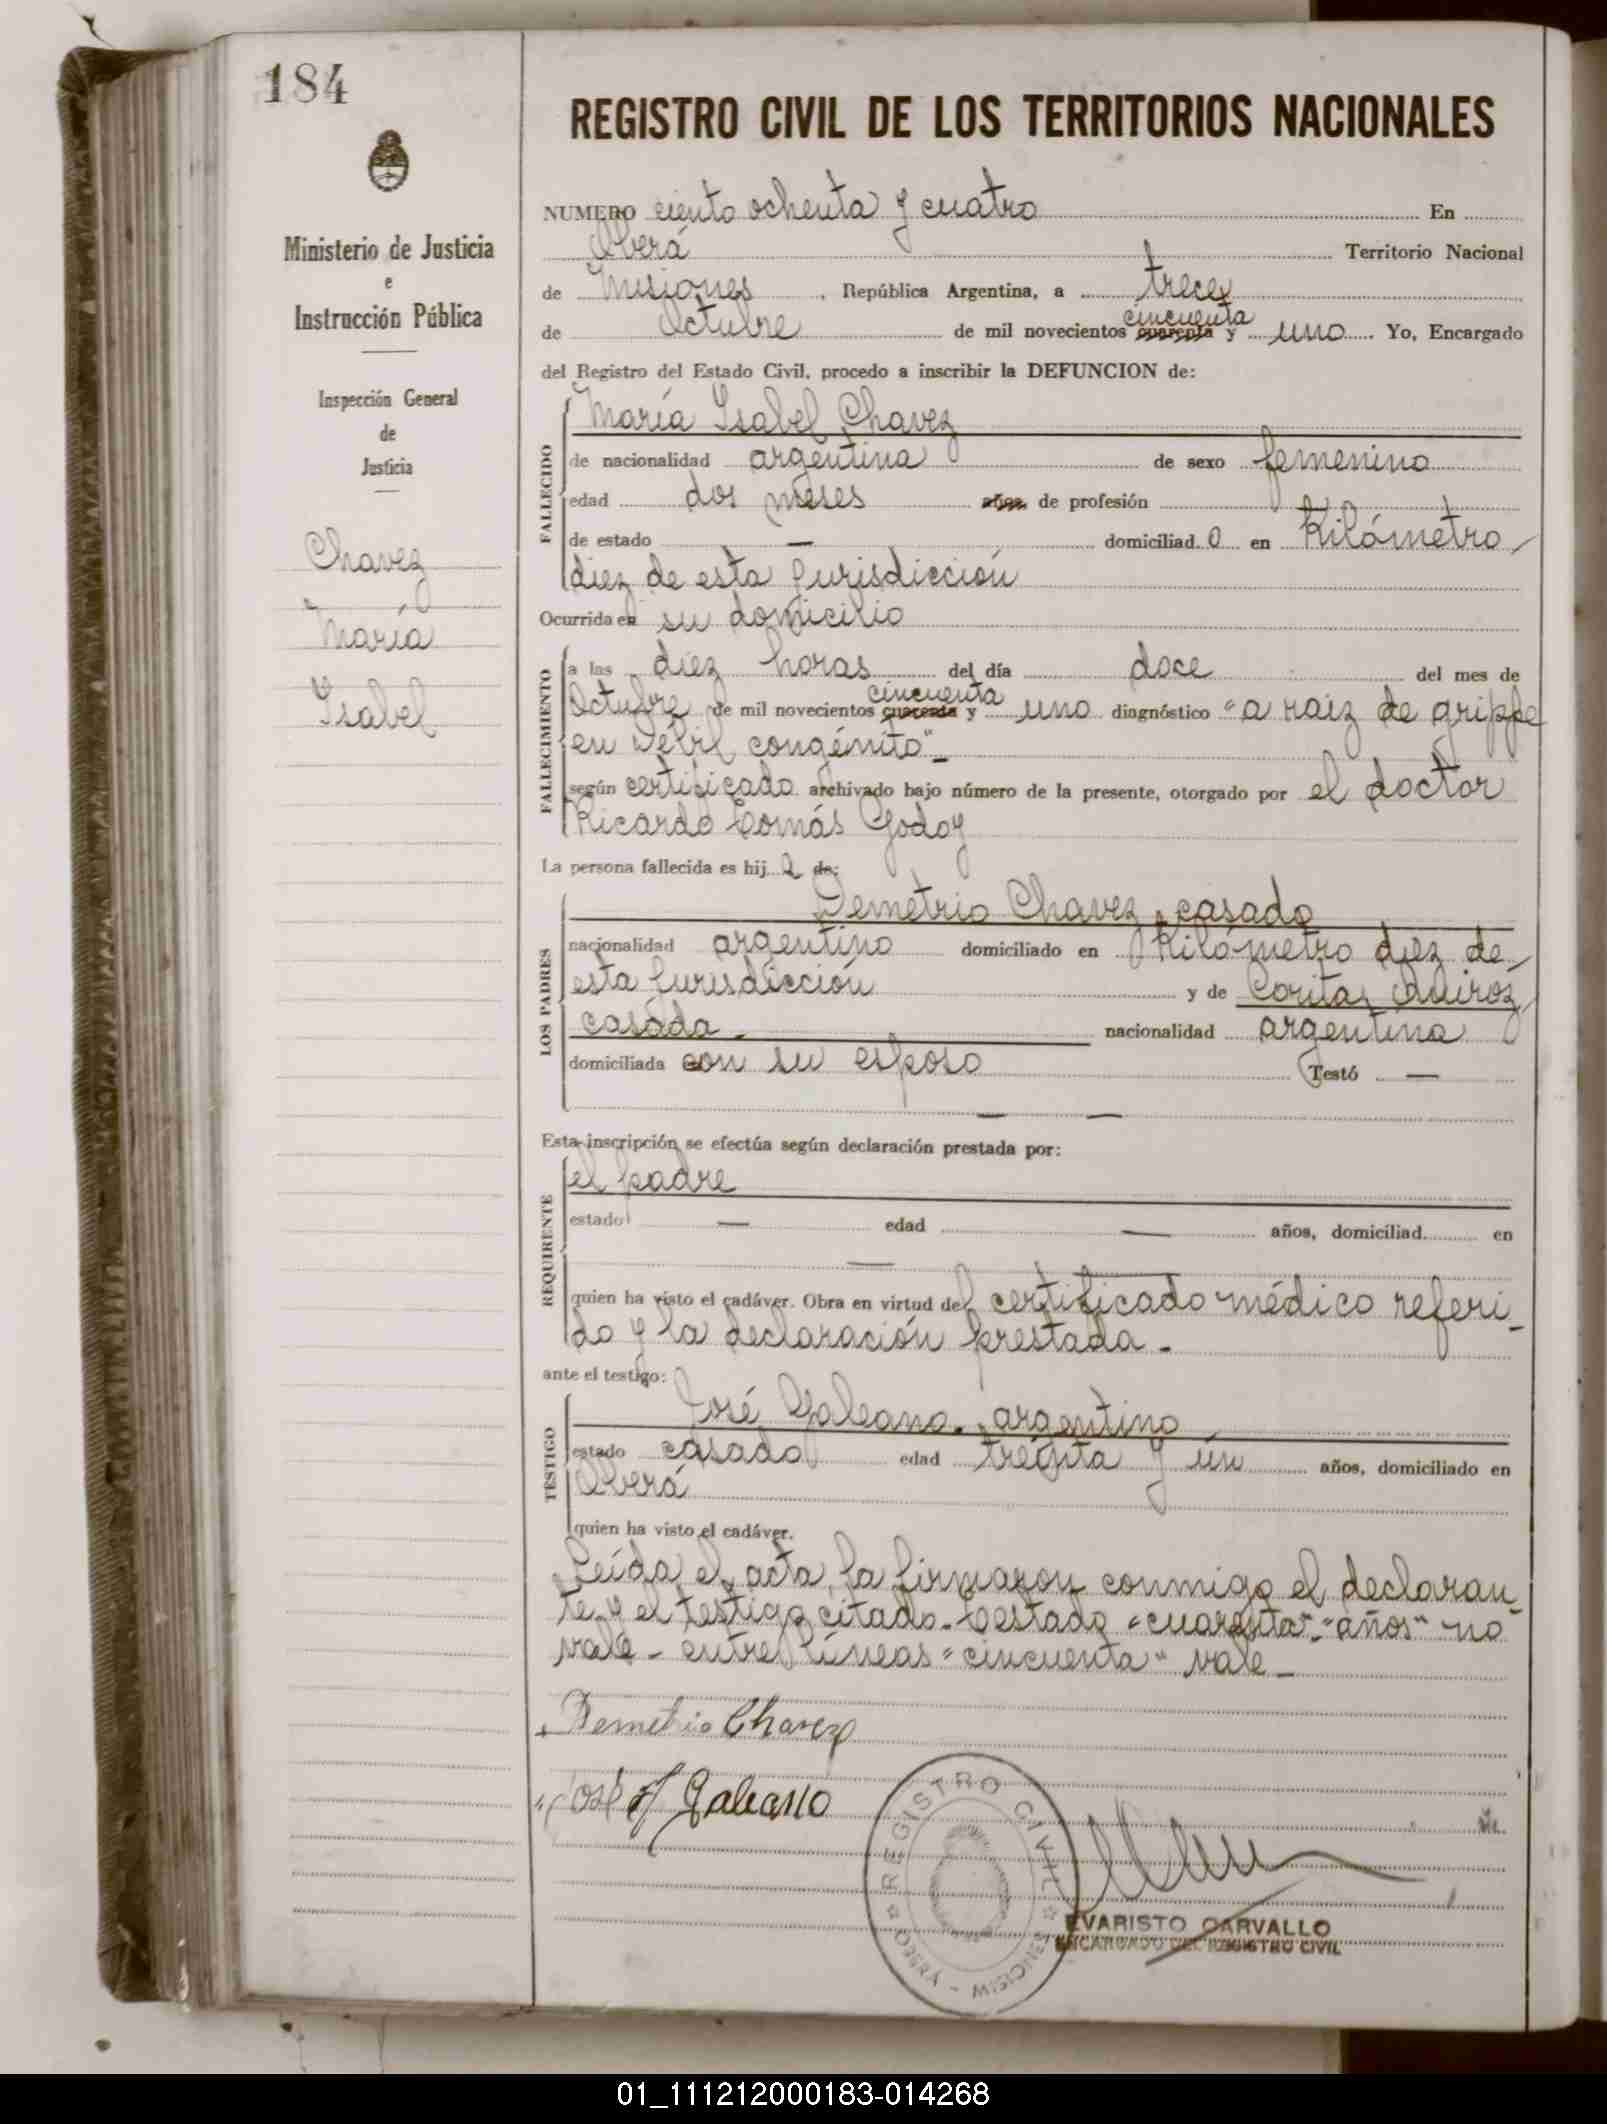 184
REGISTRO CIVIL DE LOS TERRITORIOS NACIONALES
Ministerio de Justicia
e
Instrucción Pública
Inspección General
de
Justicia
Chavez
María
Isabel
NUMERO ciento ochenta y cuatro En
Oberá Territorio Nacional
de Misiones, República Argentina, a trece
cincuenta
de Octubre de mil novecientos cuarenta y uno. Yo, Encargado
del Registro del Estado Civil, procedo a inscribir la DEFUNCION de:
FALLECIDO
María Isabel Chavez
de nacionalidad argentina de sexo femenino
edad dos meses años de profesión
de estado — domiciliad o en Kilómetro
diez de esta Jurisdicción
Ocurrida en su domicilio
FALLECIMIENTO
a las diez horas del día doce del mes de
cincuenta
Octubre de mil novecientos cuarenta y uno diagnóstico "a raiz de grippe
en Débil congénito"-
según certificado archivado bajo número de la presente, otorgado por el doctor
Ricardo Tomás Godoy
La persona fallecida es hij a de:
LOS PADRES
Demetrio Chavez, casado
nacionalidad argentino domiciliado en Kilómetro diez de
esta Jurisdicción y de Quiroz
casada - nacionalidad argentina
domiciliada con su esposo Testó —
— —
Esta inscripción se efectúa según declaración prestada por:
REQUIRENTE
el padre
estado — edad — años, domiciliad en
—
quien ha visto el cadáver. Obra en virtud del certificado médico referi-
do y la declaración prestada.-
ante el testigo:
TESTIGO
José Galeano. argentino
estado casado edad treinta y un años, domiciliado en
Oberá
quien ha visto el cadáver.
Leída el acta, la firmaron conmigo el declaran-
te y el testigo citado.- Testado "cuarenta"-"años" no
vale - entre líneas "cincuenta" vale-
Demetrio Chavez
José Galeano
REGISTRO CIVIL
OBERÁ - MISIONES
EVARISTO CARVALLO
ENCARGADO DEL REGISTRO CIVIL
01_111212000183-014268